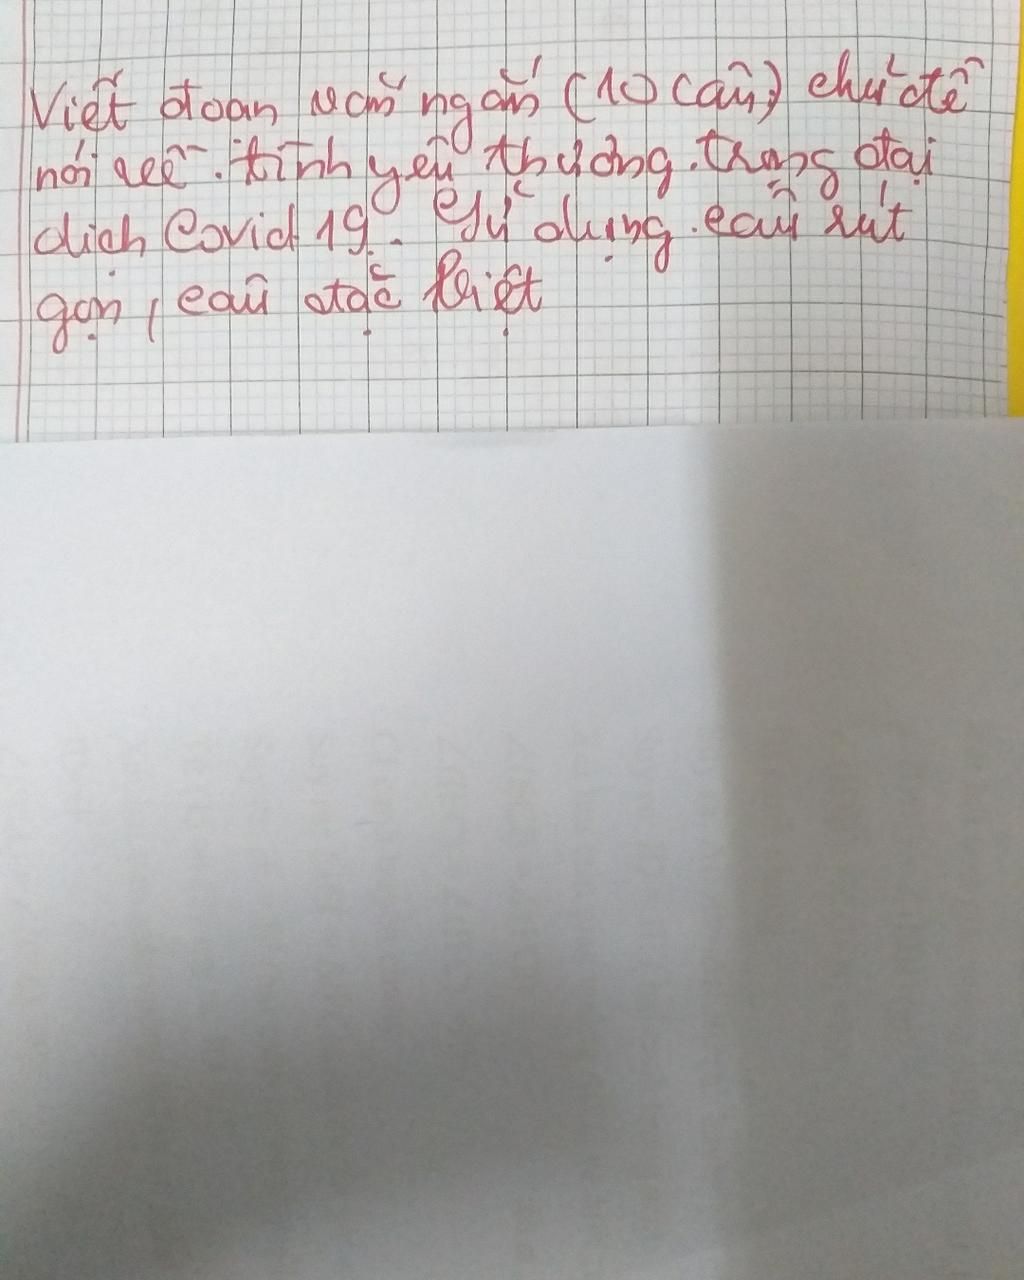 Viết đoạn văn ngắn (10 câu) chủ đề
nói về tình yêu thương trong đại
dịch Covid 19. Sử dụng câu rút
gọn, câu đặc biệt